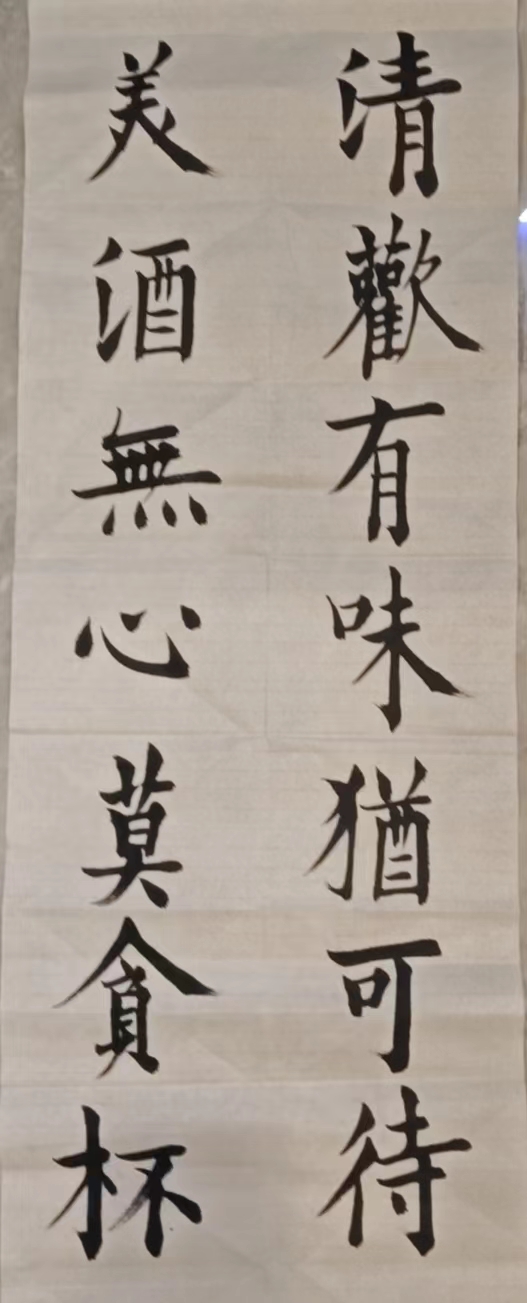 清歡有味猶可待
美酒無心莫貪杯